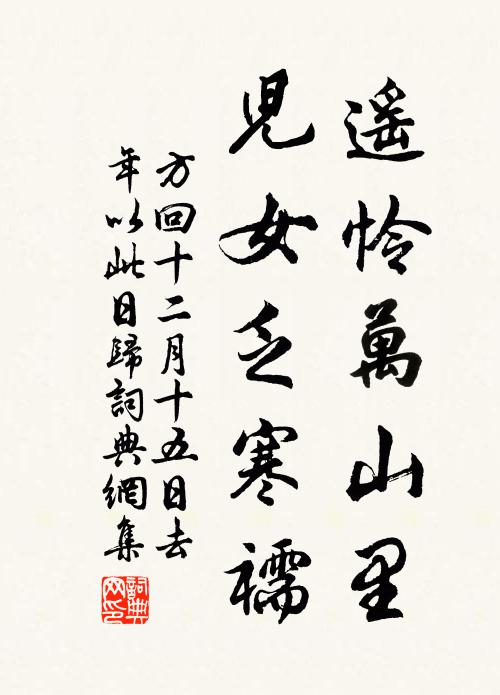 遥憐萬山里
兒女乏寒襦
方回十二月十五日去
年以此日歸詞典網集
詞典
网印